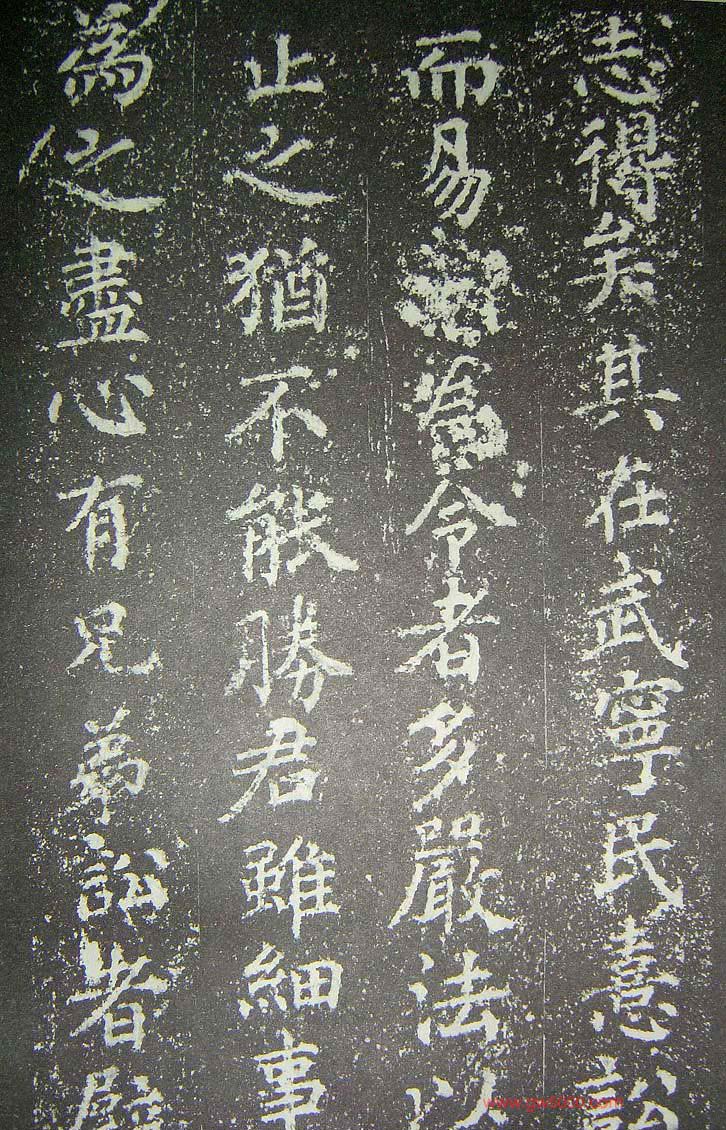 志得矣其在武寧民憙訟
而易為令者多嚴法以
止之猶不能勝君雖細事
為之盡心有兄弟訟者